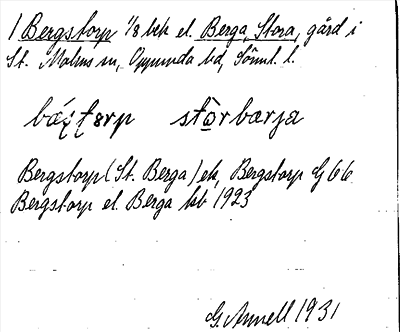 1 Bergstorp 1/8 bek el. Berga, Stora, gård i
St. Malms sn, Oppunda hd, Söml. l.
stòrbarja
Bergstorp (St. Berga) ek, Bergstorp G 66
Bergstorp el. Berga kb 1923
G. Annell 1931